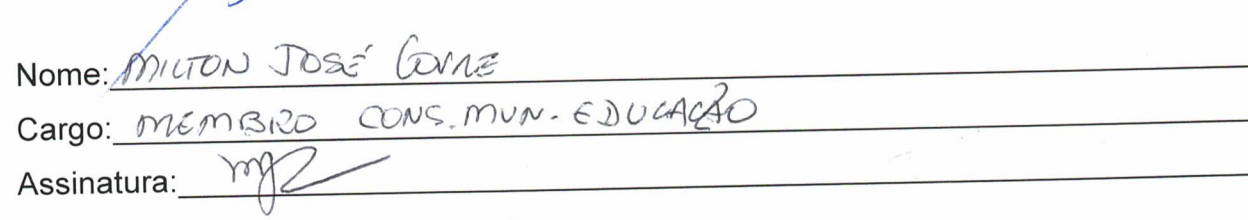 Nome: MILTON JOSÉ
Cargo: MEMBRO CONS. MUN. EDUCAÇÃO
Assinatura: